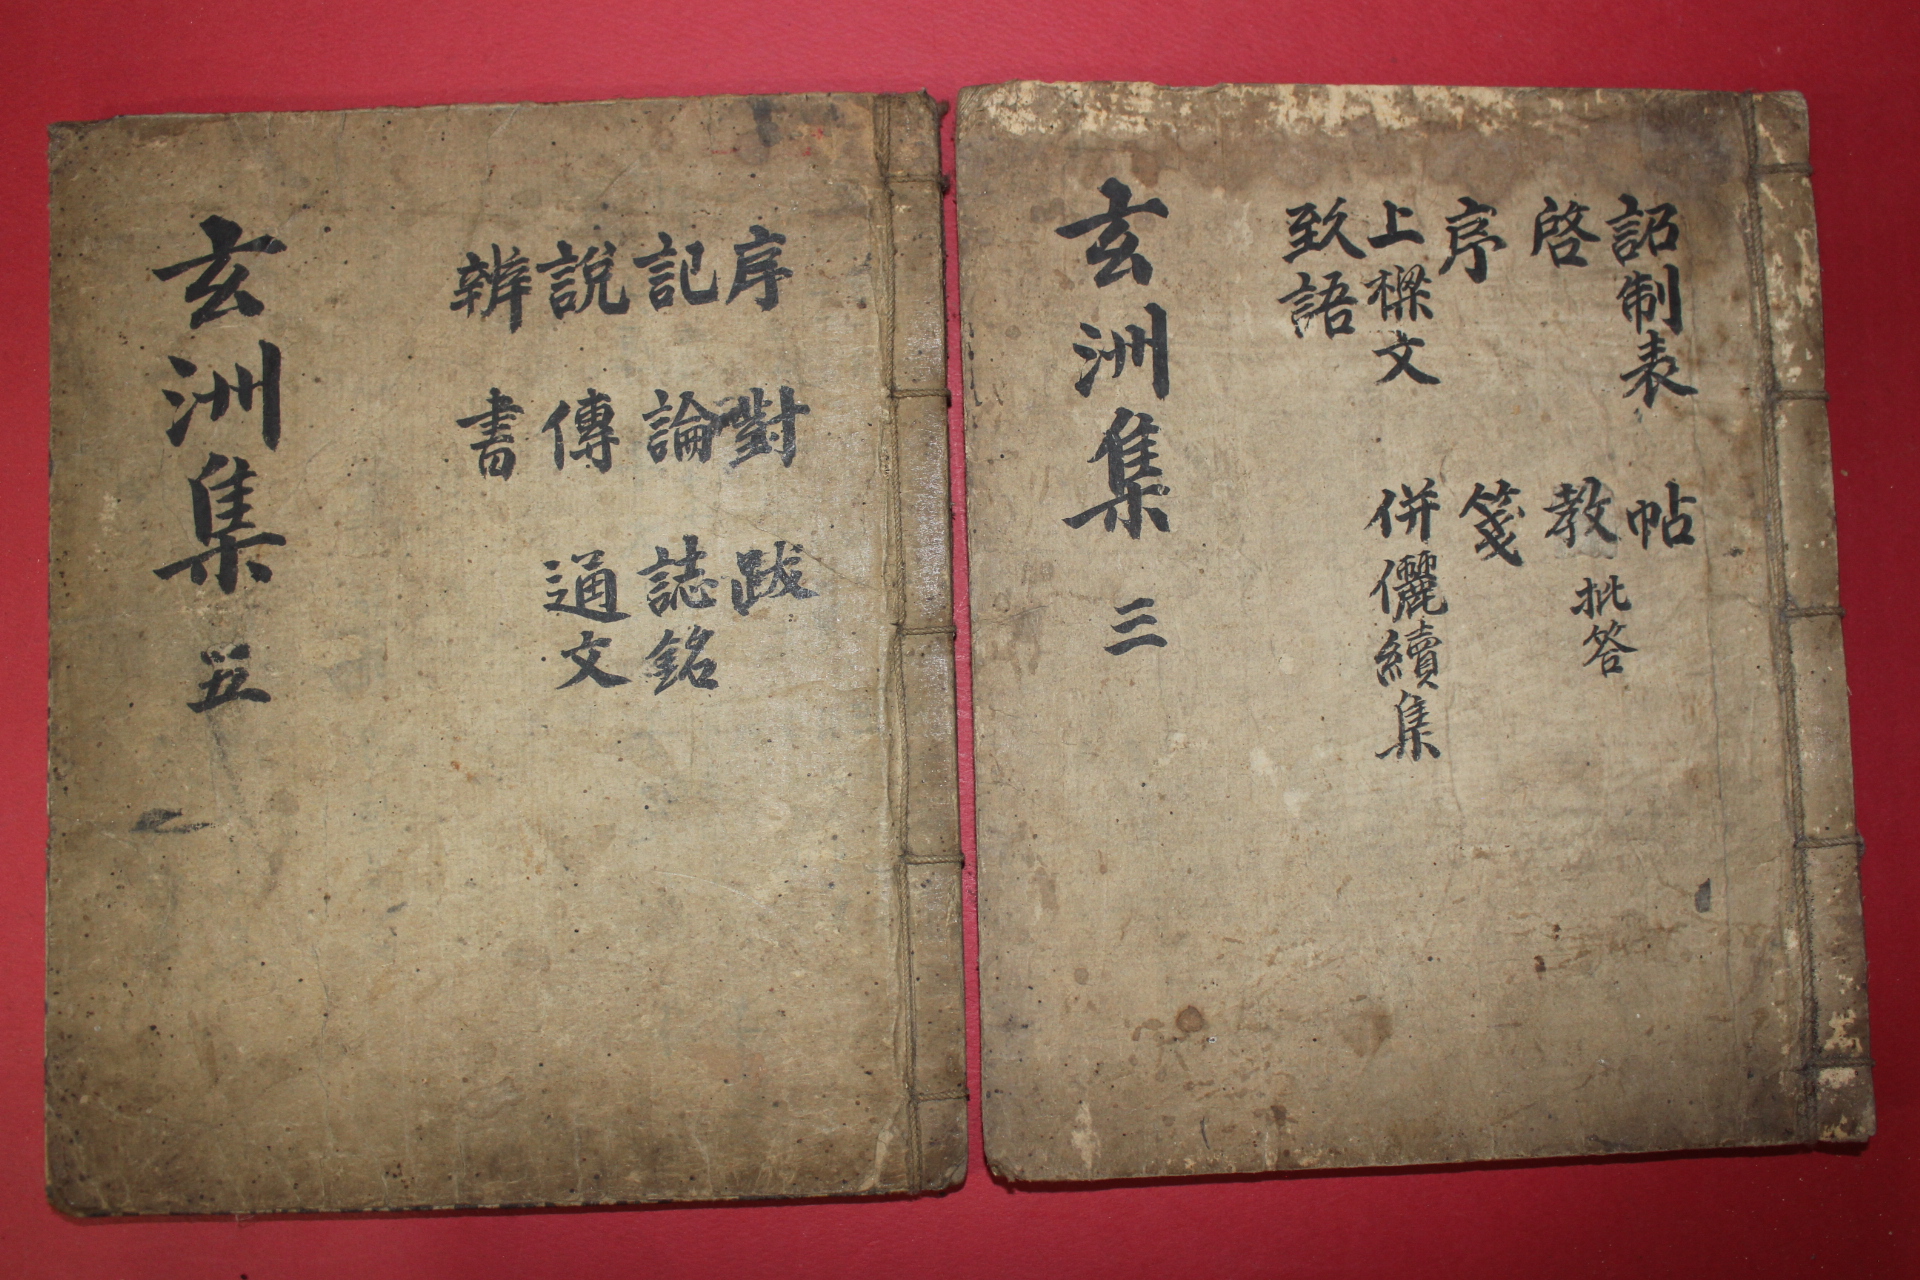 序 對 跋
記 論 誌銘
說 傳 通文
辨 書
玄洲集 五
詔制表 帖
啓 教 批答
序 箋
上樑文 倂儷續集
致語
玄洲集 三